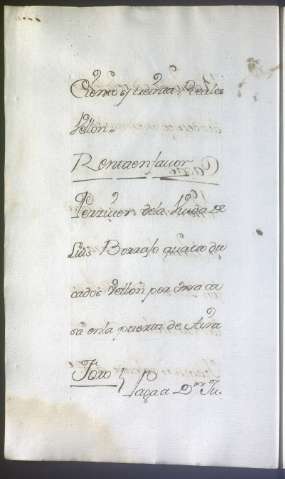 Ciento y treinta Reales
Vellon.
Renta en favor
Perziven de la Viuda de
Luis Borraso quatro du
cados Vellon por una ca
sa en la puerta de
Otro
Paga a Dn